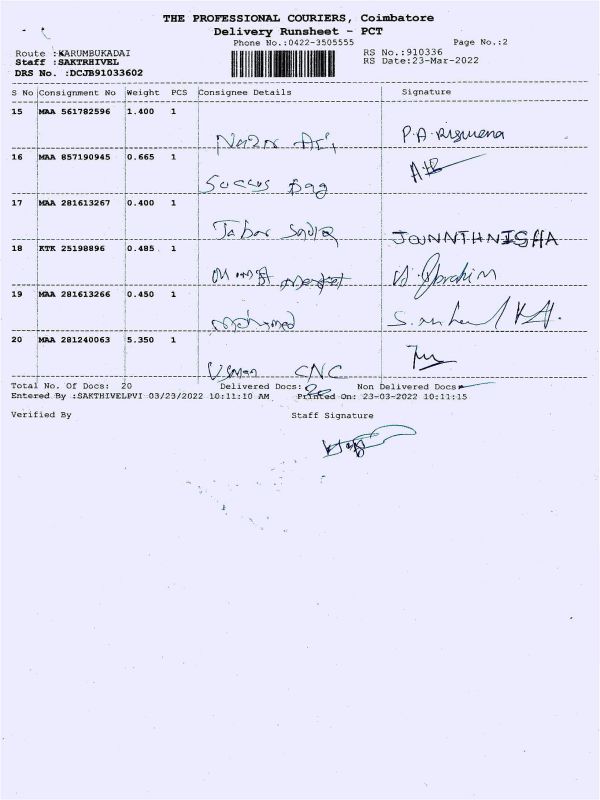 THE PROFESSIONAL COURIERS, Coimbatore
Delivery Runsheet - PCT
Phone No.:0422-3505555
Page No.:2
Route :KARUMBUKADAI
RS No.:910336
Staff :SAKTRHIVEL
RS Date:23-Mar-2022
DRS No. :DCJB91033602
S No Consignment No Weight PCS Consignee Details Signature
15 MAA 561782596 1.400 1
P.A.Riswena
16 MAA 857190945 0.665 1
Bag
17 MAA 281613267 0.400 1
JANNTHNISHA
18 KTK 25198896 0.485 1
Ibrahim
19 MAA 281613266 0.450 1
Mohamed
20 MAA 281240063 5.350 1
Usman CNC
Total No. Of Docs: 20 Delivered Docs: 20 Non Delivered Docs
Entered By :SAKTHIVELPVI 03/23/2022 10:11:10 AM Printed On: 23-03-2022 10:11:15
Verified By Staff Signature